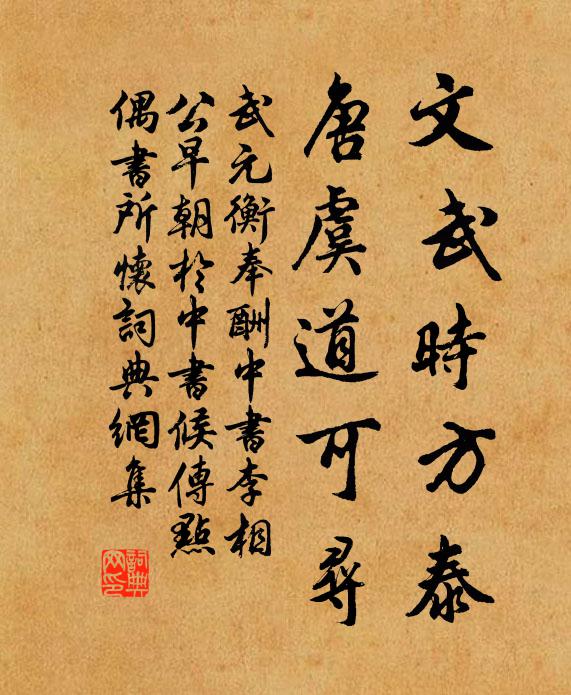 文武時方泰
唐虞道可尋
武元衡奉酬中書李相
公早朝於中書候傳點
偶書所懷詞典網集
詞典网印